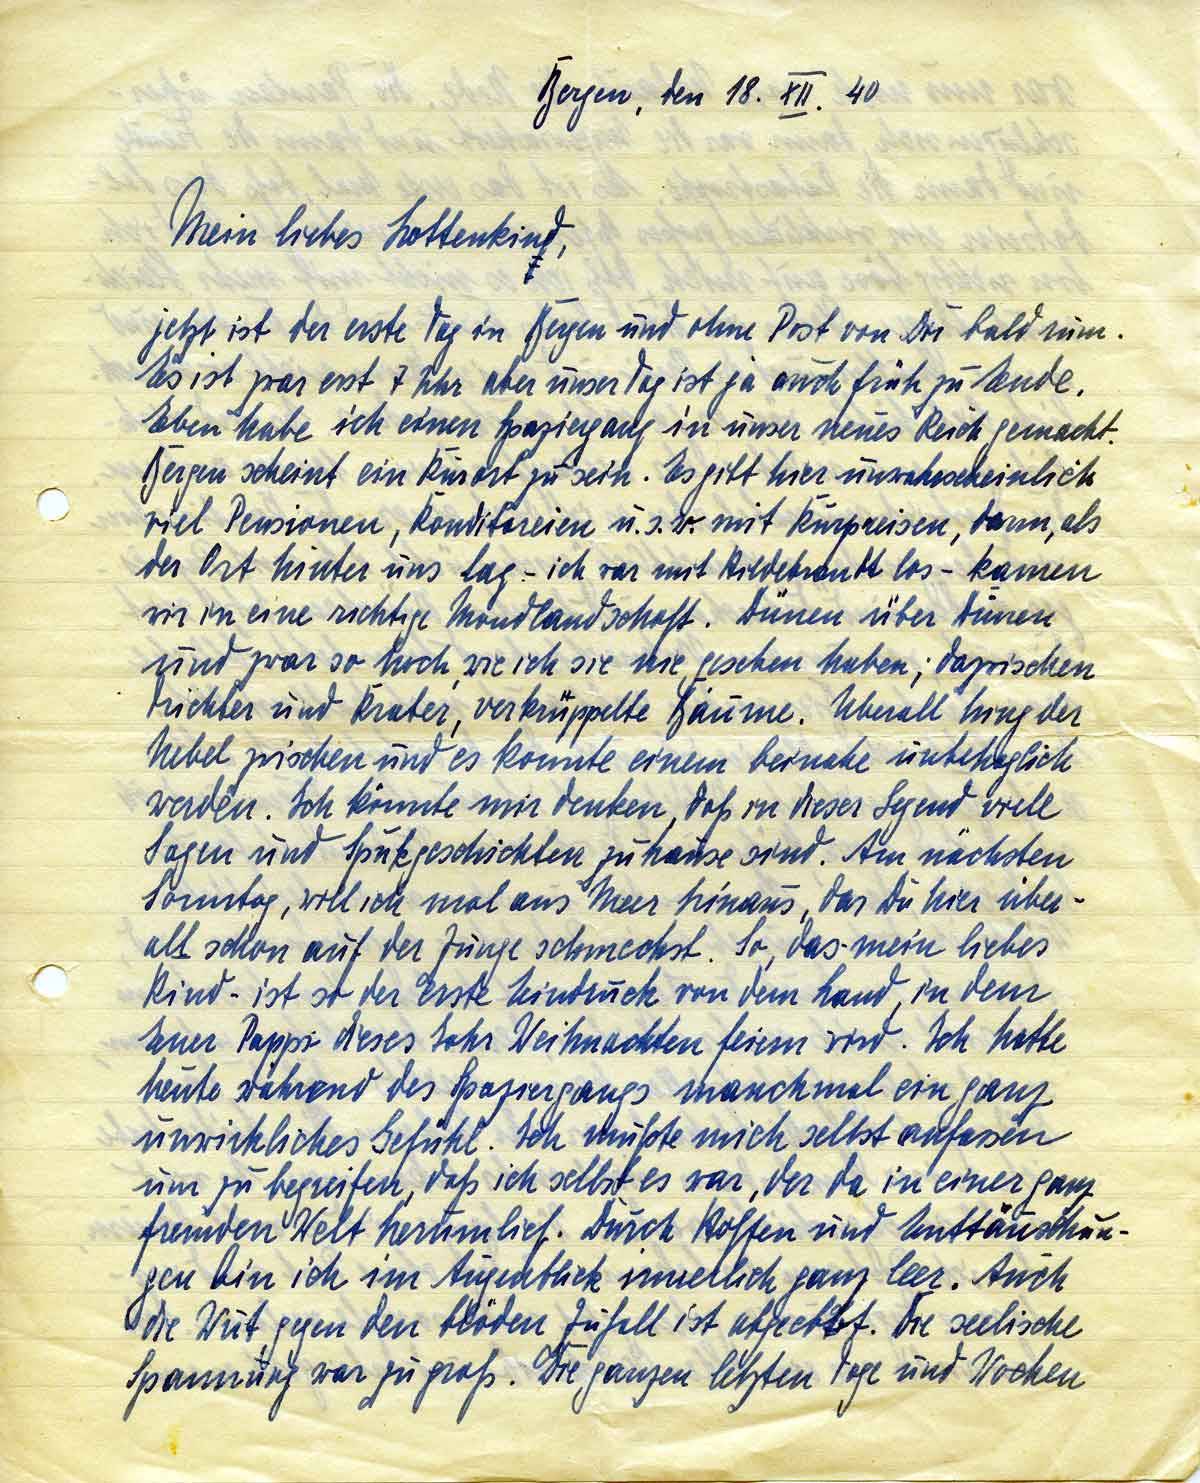 Bergen, den 18. XII. 40
Mein liebes Lottenkind,
jetzt ist der erste Tag in Bergen und ohne Post von Dir bald rum.
Es ist zwar erst 7 Uhr aber unser Tag ist ja auch früh zu Ende.
Eben habe ich einen Spaziergang in unser neues Reich gemacht.
Bergen scheint ein Kurort zu sein. Es gibt hier unwahrscheinlich
viel Pensionen, Konditoreien u.s.w. mit Kurpreisen, dann, als
der Ort hinter uns lag - ich war mit Hildebrandt los - kamen
wir in eine richtige Mondlandschaft. Dünen über Dünen
und zwar so hoch, wie ich sie nie gesehen haben; dazwischen
Trichter und Krater, verkrüppelte Bäume. Überall hing der
Nebel zwischen und es konnte einem beinahe unbehaglich
werden. Ich könnte mir denken, daß in dieser Gegend viele
Sagen und Spukgeschichten zuhause sind. Am nächsten
Sonntag, will ich mal ans Meer hinaus, das Du hier über-
all schon auf der Zunge schmeckst. So, das - mein liebes
Kind - ist so der erste Eindruck von dem Land, in dem
Euer Pappi dieses Jahr Weihnachten feiern wird. Ich hatte
heute während des Spaziergangs manchmal ein ganz
unwirkliches Gefühl. Ich mußte mich selbst anfassen
um zu begreifen, daß ich selbst es war, der da in einer ganz
fremden Welt herumlief. Durch Hoffen und Enttäuschun-
gen bin ich im Augenblick innerlich ganz leer. Auch
die Wut gegen den blöden Zufall ist abgeebbt. Die seelische
Spannung war zu groß. Die ganzen letzten Tage und Wochen